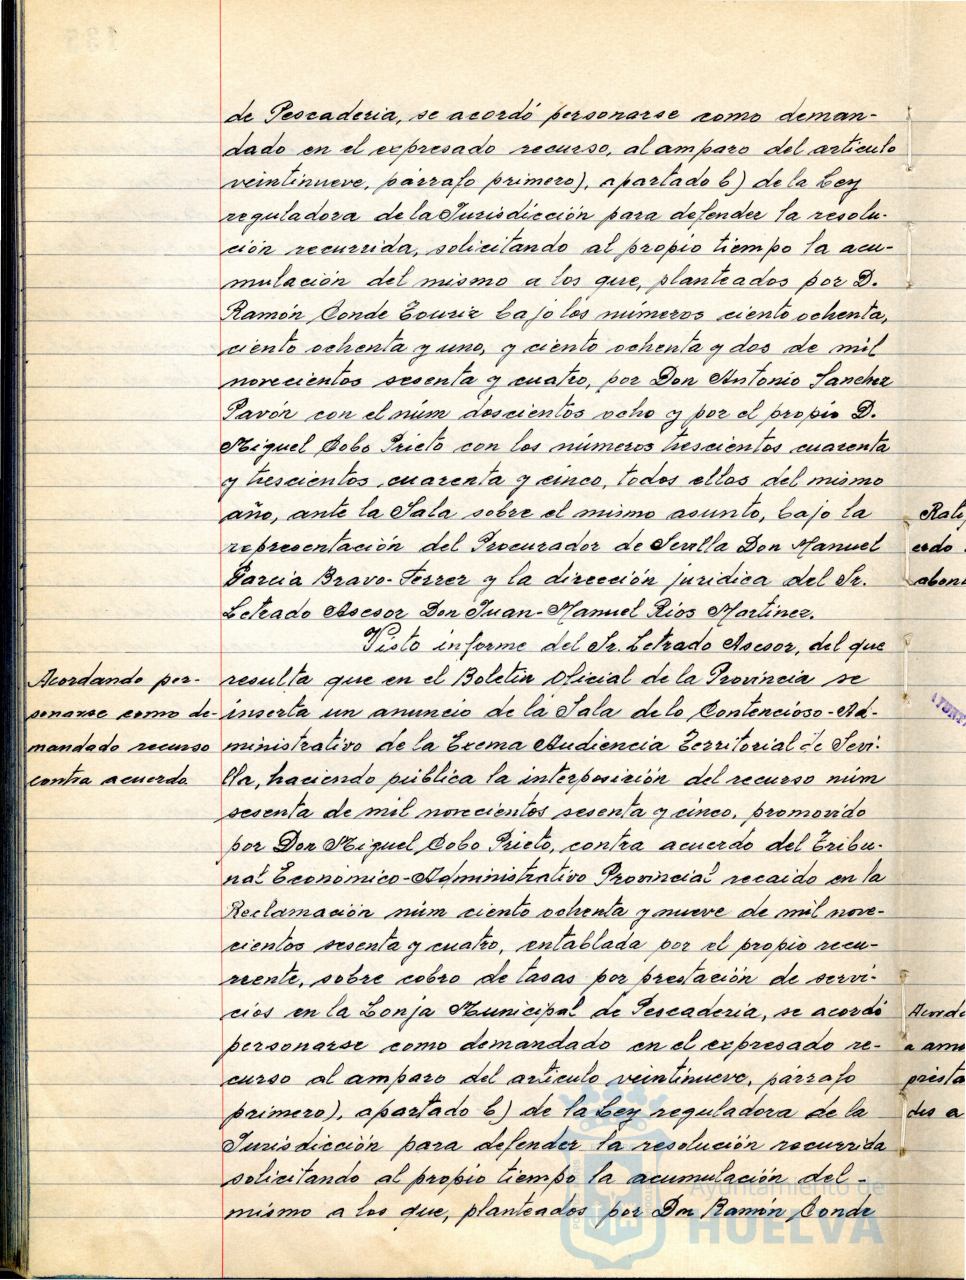 de Pescaderia, se acordó personarse como deman-
dado en el expresado recurso, al amparo del articulo
veintinueve, párrafo primero), apartado b) de la Ley
reguladora de la Jurisdicción para defender la resolu-
ción recurrida, solicitando al propio tiempo la acu-
mulación del mismo a los que, planteados por D.
Ramón Conde Touriz bajo los números ciento ochenta,
ciento ochenta y uno, y ciento ochenta y dos de mil
novecientos sesenta y cuatro, por Don Antonio Sanchez
Pavón con el núm doscientos ocho y por el propio D.
Miguel Cobo Prieto con los números trescientos cuarenta
y trescientos cuarenta y cinco, todos ellos del mismo
año, ante la Sala sobre el mismo asunto, bajo la
representación del Procurador de Sevilla Don Manuel
Garcia Bravo-Ferrer y la dirección juridica del Sr.
Letrado Asesor Don Juan-Manuel Rios Martinez.
Visto informe del Sr. Letrado Asesor, del que
Acordando per-
sonarse como de-
mandado recurso
contra acuerdo
resulta que en el Boletin Oficial de la Provincia se
inserta un anuncio de la Sala de lo Contencioso-Ad-
ministrativo de la Excma Audiencia Territorial de Sevi-
lla, haciendo pública la interposición del recurso núm
sesenta de mil novecientos sesenta y cinco, promovido
por Don Miguel Cobo Prieto, contra acuerdo del Tribu-
nal Económico-Administrativo Provincial recaido en la
Reclamación núm ciento ochenta y nueve de mil nove-
cientos sesenta y cuatro, entablada por el propio recu-
rrente, sobre cobro de tasas por prestación de servi-
cios en la Lonja Municipal de Pescaderia, se acordó
personarse como demandado en el expresado re-
curso al amparo del articulo veintinueve, párrafo
primero), apartado b) de la Ley reguladora de la
Jurisdicción para defender la resolución recurrida
solicitando al propio tiempo la acumulación del -
mismo a los que, planteados por Don Ramón Conde
Ayuntamiento de
HUELVA